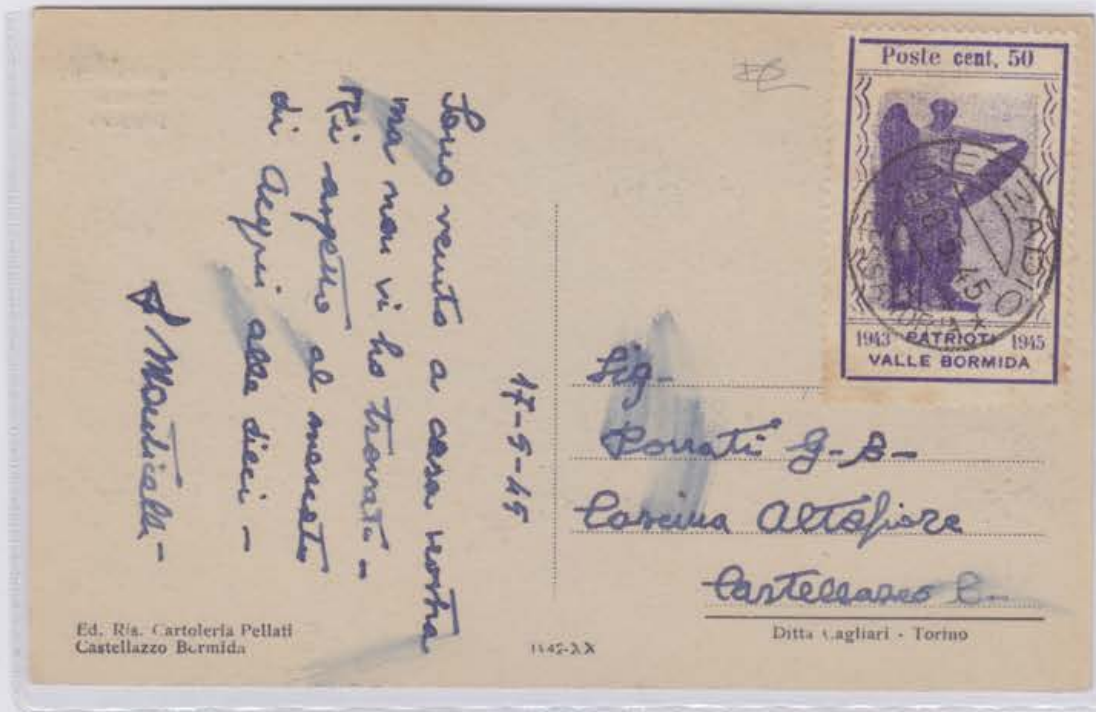 Poste cent. 50
1943 PATRIOTI 1945
VALLE BORMIDA
Sono venuto a casa vostra
ma non vi ho trovati -
Vi aspetto al mercato
di Acqui alle dieci -
17-5-45
Sig.
Porrati G. B.
Cascina Altafiore
Castellazzo B.
Ed. Ris. Cartoleria Pellati
Castellazzo Bormida
1942-XX
Ditta Cagliari - Torino